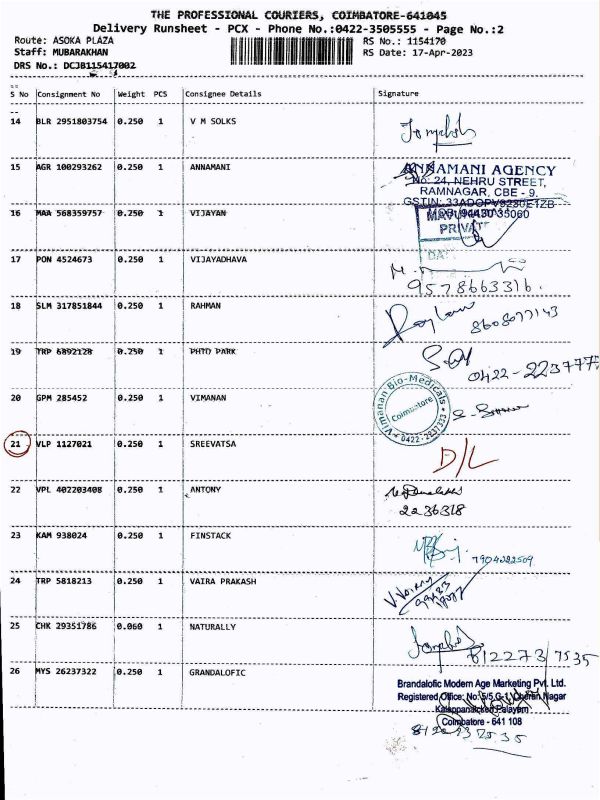 THE PROFESSIONAL COURIERS, COIMBATORE-641045
Delivery Runsheet - PCX - Phone No.:0422-3505555 - Page No.:2
Route: ASOKA PLAZA
RS No.: 1154170
Staff: MUBARAKHAN
RS Date: 17-Apr-2023
DRS No.: DCJB115417002
S No Consignment No Weight PCS Consignee Details Signature
14 BLR 2951803754 0.250 1 V M SOLKS
15 AGR 100293262 0.250 1 ANNAMANI
ANNAMANI AGENCY
No: 24, NEHRU STREET,
RAMNAGAR, CBE - 9.
GSTIN: 33ADOPV9230E1ZB
16 MAA 568359757 0.250 1 VIJAYAN
PRIVAT
17 PON 4524673 0.250 1 VIJAYADHAVA
9578663316.
18 SLM 317851844 0.250 1 RAHMAN
8608077143
19 TRP 6892128 0.250 1 PHTO PARK
0422-223777
20 GPM 285452 0.250 1 VIMANAN
Vimanan Bio-Medicals
Coimbatore
0422-2237333
21 VLP 1127021 0.250 1 SREEVATSA
D/L
22 VPL 402203408 0.250 1 ANTONY
2236318
23 KAM 938024 0.250 1 FINSTACK
7904282509
24 TRP 5818213 0.250 1 VAIRA PRAKASH
25 CHK 29351786 0.060 1 NATURALLY
8122737535
26 MYS 26237322 0.250 1 GRANDALOFIC
Brandalofic Modern Age Marketing Pvt. Ltd.
Registered Office: No: 5/5,G-1, Cheran Nagar
Kalappanaicken Palayam
Coimbatore - 641 108